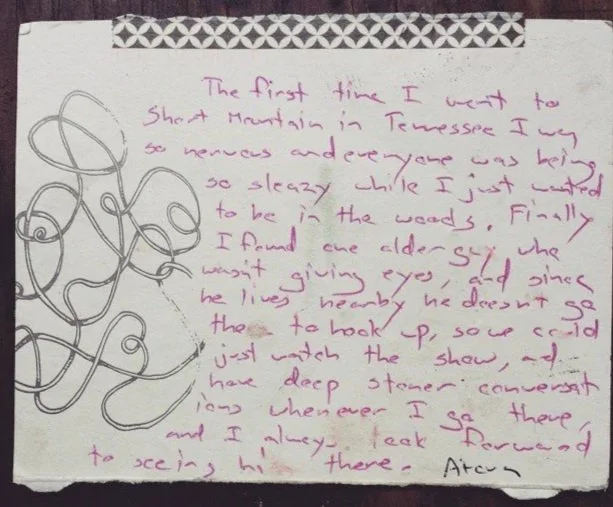 The first time I went to
Short Mountain in Tennessee I was
so nervous and everyone was being
so sleazy while I just wanted
to be in the woods. Finally
I found one older guy who
wasn't giving eyes, and since
he lives nearby he doesn't go
to hook up, so we could
just watch the show, and
have deep stoner conversat
ions whenever I go there,
and I always look forward
to seeing him there.